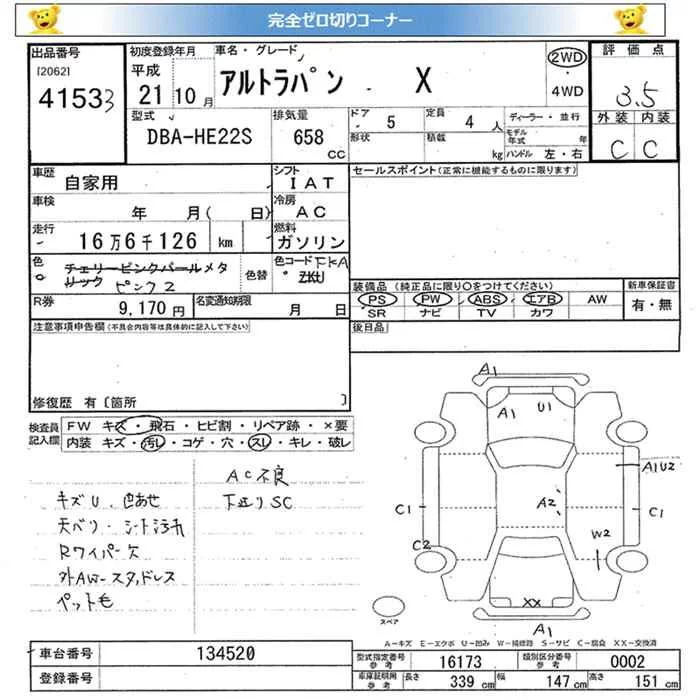 完全ゼロ切りコーナー
出品番号
[2062]
41533
初度登録年月
平成
21 10月
車名・グレード
アルトラパン X
2WD
4WD
評価点
3.5
外装 内装
C C
型式
DBA-HE22S
排気量
658
CC
ドア
5
形状
定員
4 人
積載
kg
ディーラー・並行
モデル年式 年
ハンドル 左・右
車歴
自家用
シフト
IAT
セールスポイント(正常に機能するものに限ります)
車検
年 月( 日)
冷房
AC
走行
16万6千126 km
燃料
ガソリン
色
チェリーピンクパールメタリック
ピンク2
色替
色コード
FKA
ZKU
装備品 (純正品に限り○をつけてください)
PS PW ABS エアB AW
SR ナビ TV カワ
新車保証書
有・無
R券
9,170 円
名変通知期限
月 日
後日品
注意事項申告欄(不具合内容等は具体的に記入して下さい)
修復歴 有〔箇所 〕
検査員記入欄
FW キズ・飛石・ヒビ割・リペア跡・×要
内装 キズ・汚れ・コゲ・穴・スレ・キレ・破レ
キズU、色あせ
天ベリ・シート汚れ
Rワイパー欠
外AW-スタッドレス
ペット毛
AC不良
下廻りSC
A1
A1 U1
A1U2
C1
A2
C1
C2
W2
XX
A1
スペア
A-キズ E-エクボ U-凹み W-補修跡 S-サビ C-腐食 XX-交換済
車台番号
134520
登録番号
型式指定番号
参考
16173
類別区分番号
参考
0002
車庫証明用
参考
長さ
339 cm
幅
147 cm
高さ
151 cm